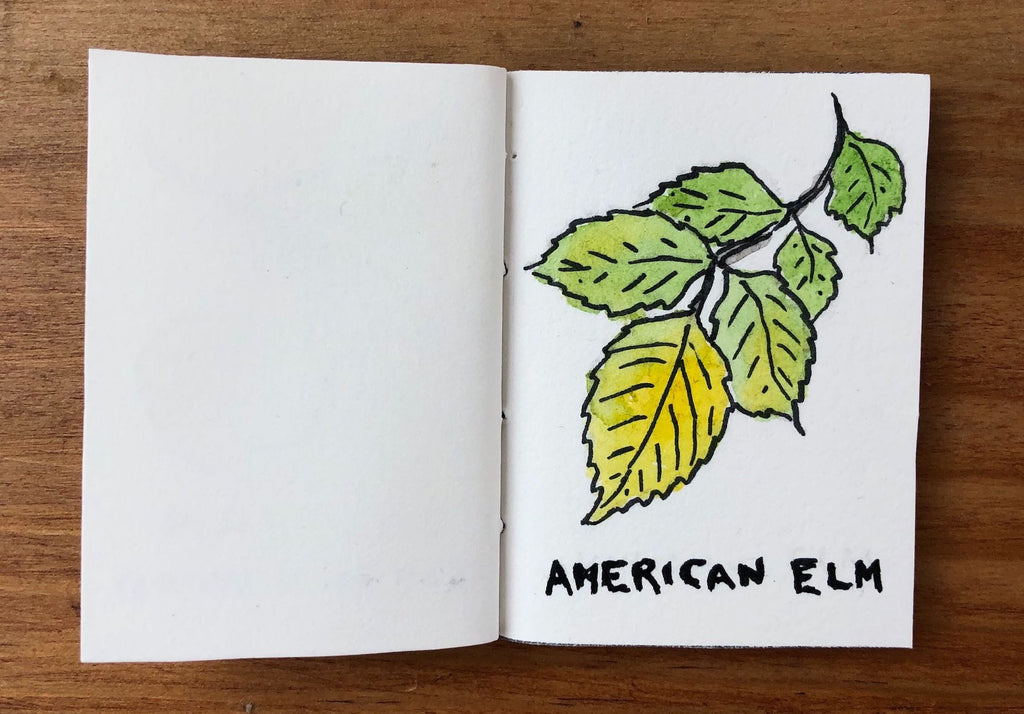 AMERICAN ELM